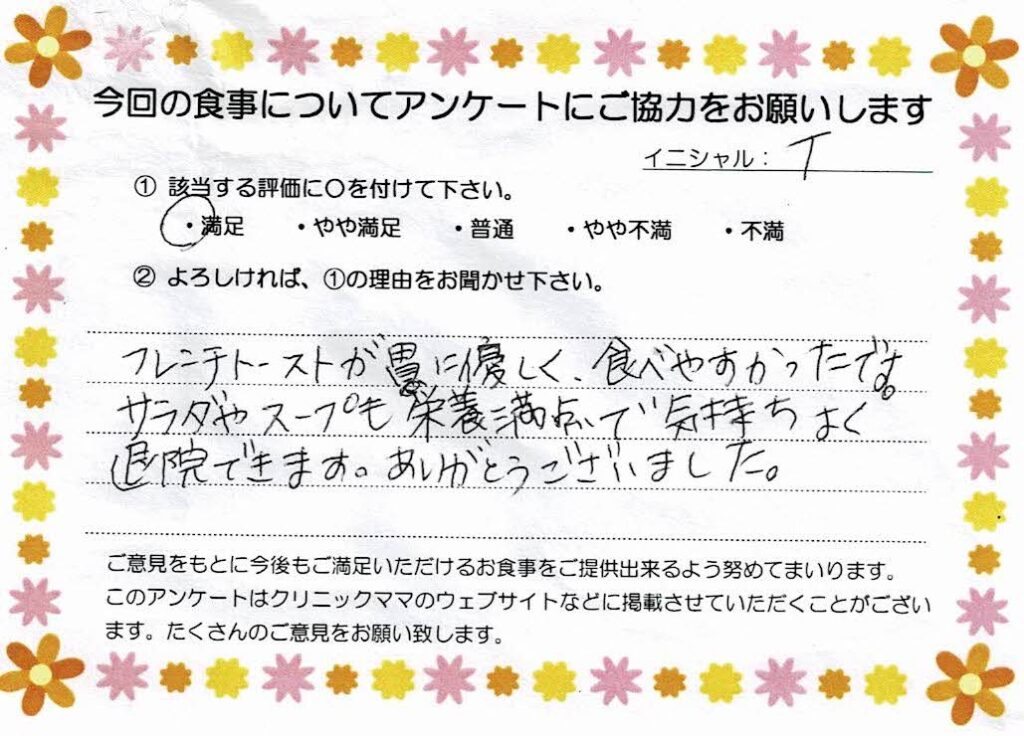 今回の食事についてアンケートにご協力をお願いします
イニシャル: T
① 該当する評価に○を付けて下さい。
・満足 ・やや満足 ・普通 ・やや不満 ・不満
② よろしければ、①の理由をお聞かせ下さい。
フレンチトーストが胃に優しく、食べやすかったです。
サラダやスープも栄養満点で気持ちよく
退院できます。ありがとうございました。
ご意見をもとに今後もご満足いただけるお食事をご提供出来るよう努めてまいります。
このアンケートはクリニックママのウェブサイトなどに掲載させていただくことがござい
ます。たくさんのご意見をお願い致します。